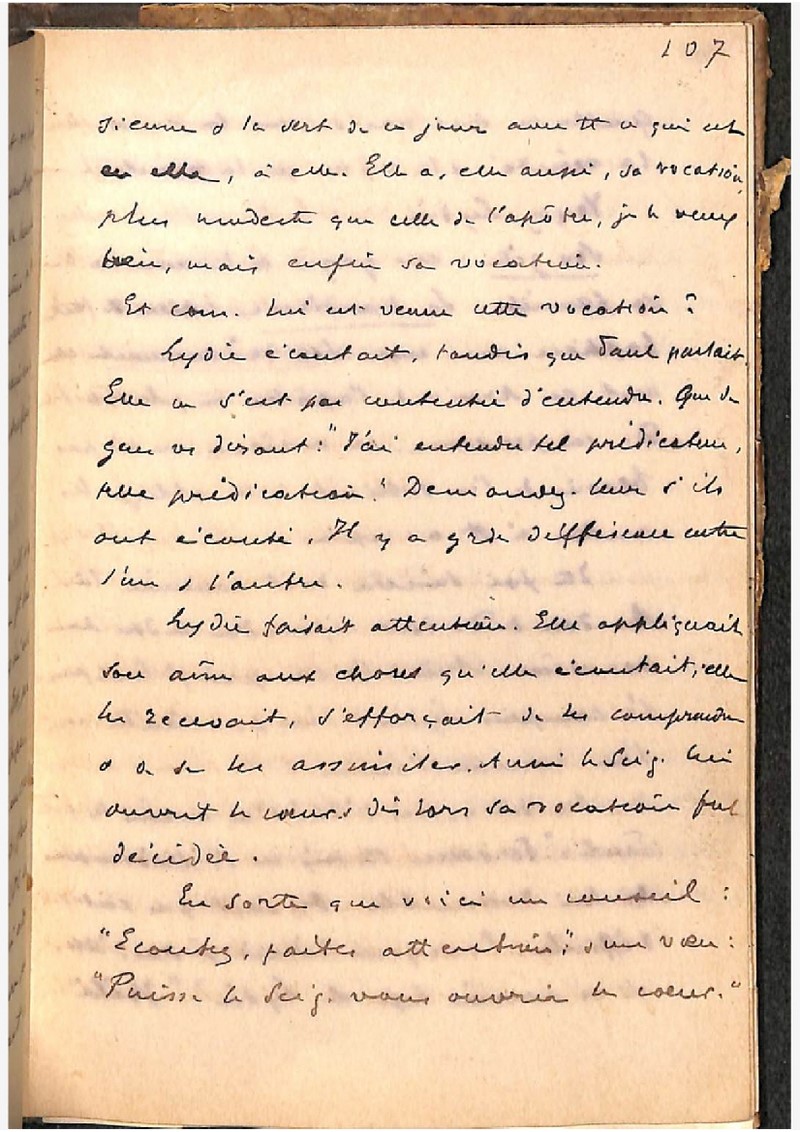 107
sienne & la sert de ce jour avec tt ce qui est
en elle, à elle. Elle a, elle aussi, sa vocation,
plus modeste que celle de l'apôtre, je le veux
bien, mais enfin sa vocation.
Et com. lui est venue cette vocation ?
Lydie écoutait, tandis que Paul parlait.
Elle ne s'est pas contentée d'entendre. Que de
gens vs disent : "J'ai entendu tel prédicateur,
telle prédication." Demandez-leur s'ils
ont écouté. Il y a grde différence entre
l'un & l'autre.
Lydie faisait attention. Elle appliquait
son âme aux choses qu'elle écoutait, elle
les recevait, s'efforçait de les comprendre
& de se les assimiler. Aussi le Seig. lui
ouvrit le cœur & dès lors sa vocation fut
décidée.
En sorte que voici un conseil :
"Ecoutez, faites attention", & un vœu :
"Puisse le Seig. vous ouvrir le cœur."